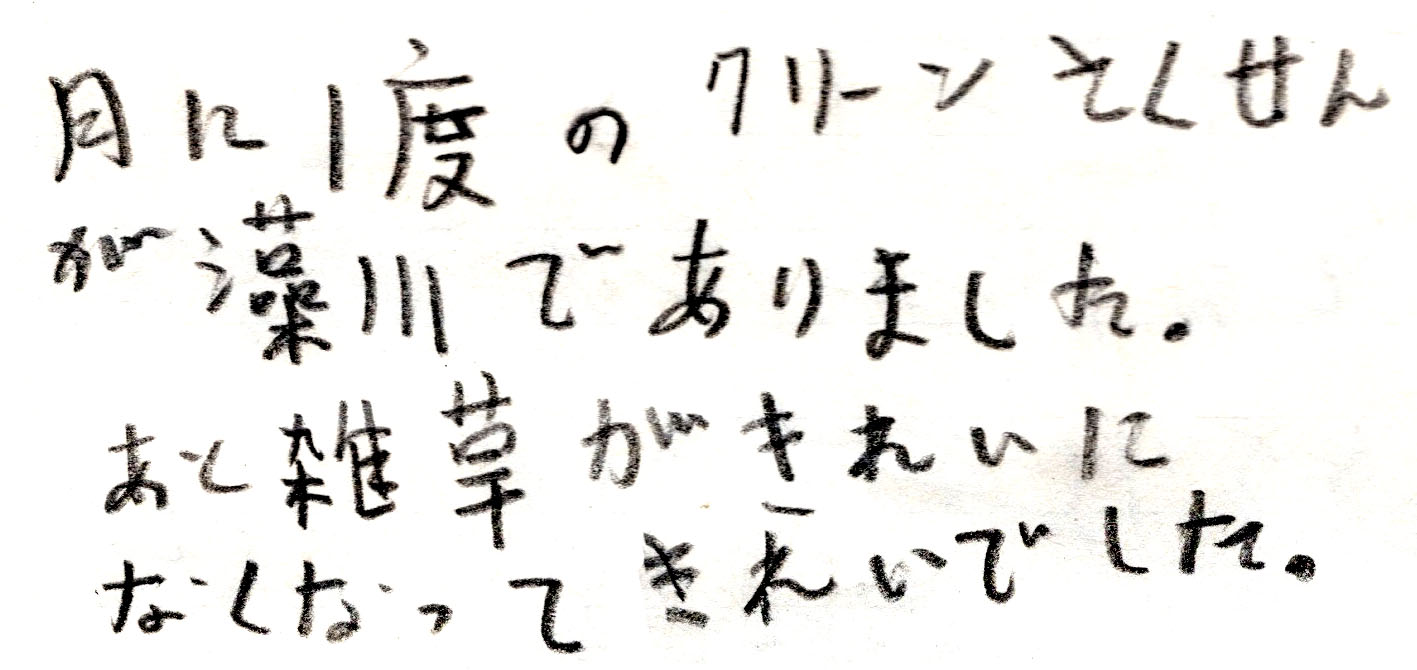 月に1度のクリーンとくせん
が藻川でありました。
あと雑草がきれいに
なくなってきれいでした。